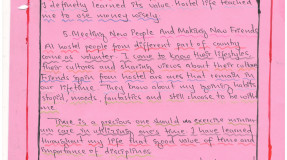 I definately learned its value. Hostel life teached
me to use money wisely.
5. Meeting New People And Making New Friends
At hostel people from different part of country
come as volunteer. I came to know their lifestyles
their cultures and sharing views about their culture
Friends from hostel are ones that remain in
our lifetime. They know about my habits
stupid, moods, fantastics and still choose to be with
me.
There is a precious one could exercise
care in utilising ones time. I have learned
throughout my life that good value of time and
importance of disciplines